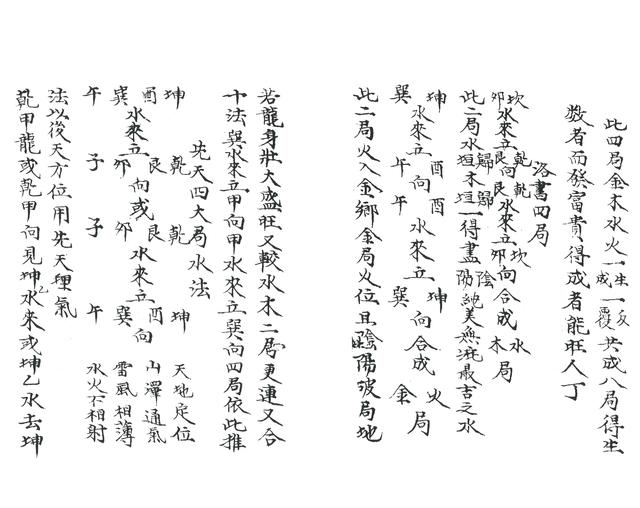 此四局金木水火一生一反成覆共成八局得生
数者而發富貴得成者能旺人丁
洛書四局
坎卯水來立乾艮向乾艮水來立坎卯向合成水木局
此二局水垣歸木垣歸一得盡陰陽純美無疵最吉之水
坤巽水來立酉午向酉午水來立坤巽向合成火金局
此二局火入金鄉金局火位且陰陽破局地
若龍身壯大盛旺又較水木二局更運又合
十法巽水來立甲向甲水來立巽向四局依此推
先天四大局水法
坤水來立乾向或乾水來立坤向 天地定位
酉水來立艮向或艮水來立酉向 山澤通氣
巽水來立卯向或卯水來立巽向 雷風相薄
午 子 子 午 水火不相射
法以後天方位用先天理氣
乾甲龍或乾甲向見坤乙水來或坤乙水去坤